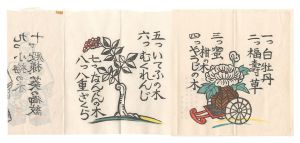 一つ白牡丹
二つ福寿草
三つ蜜柑の木
四つやつじの木
五ついてふの木
六つむくれんじ
七つなんてんの木
八つ八重ざくら
九つ小梅の
十つ殿様葵の御紋